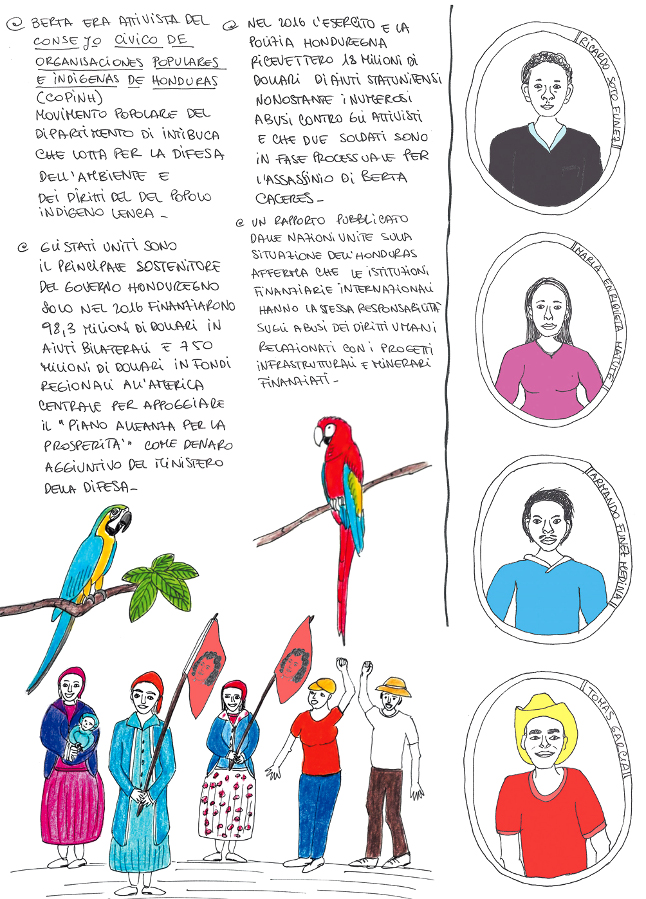 @ BERTA ERA ATTIVISTA DEL
CONSEJO CIVICO DE
ORGANISACIONES POPULARES
E INDÍGENAS DE HONDURAS
(COPINH)
MOVIMENTO POPOLARE DEL
DIPARTIMENTO DI INTIBUCA
CHE LOTTA PER LA DIFESA
DELL'AMBIENTE E
DEI DIRITTI DEL DEL POPOLO
INDIGENO LENCA_
@ GLI STATI UNITI SONO
IL PRINCIPALE SOSTENITORE
DEL GOVERNO HONDUREGNO
SOLO NEL 2016 FINANZIARONO
98,3 MILIONI DI DOLLARI IN
AIUTI BILATERALI E 750
MILIONI DI DOLLARI IN FONDI
REGIONALI ALL'AMERICA
CENTRALE PER APPOGGIARE
IL "PIANO ALLEANZA PER LA
PROSPERITA'" COME DENARO
AGGIUNTIVO DEL MINISTERO
DELLA DIFESA_
@ NEL 2016 L'ESERCITO E LA
POLIZIA HONDUREGNA
RICEVETTERO 18 MILIONI DI
DOLLARI DI AIUTI STATUNITENSI
NONOSTANTE I NUMEROSI
ABUSI CONTRO GLI ATTIVISTI
E CHE DUE SOLDATI SONO
IN FASE PROCESSUALE PER
L'ASSASSINIO DI BERTA
CACERES_
@ UN RAPPORTO PUBBLICATO
DALLE NAZIONI UNITE SULLA
SITUAZIONE DELL'HONDURAS
AFFERMA CHE LE ISTITUZIONI
FINANZIARIE INTERNAZIONALI
HANNO LA STESSA RESPONSABILITA'
SUGLI ABUSI DEI DIRITTI UMANI
RELAZIONATI CON I PROGETTI
INFRASTRUTTURALI E MINERARI
FINANZIATI_
RICARDO SOTO FUNEZ
MARIA ENRIQUETA MATUTE
ARMANDO FUNEZ MEDINA
TOMAS GARCIA